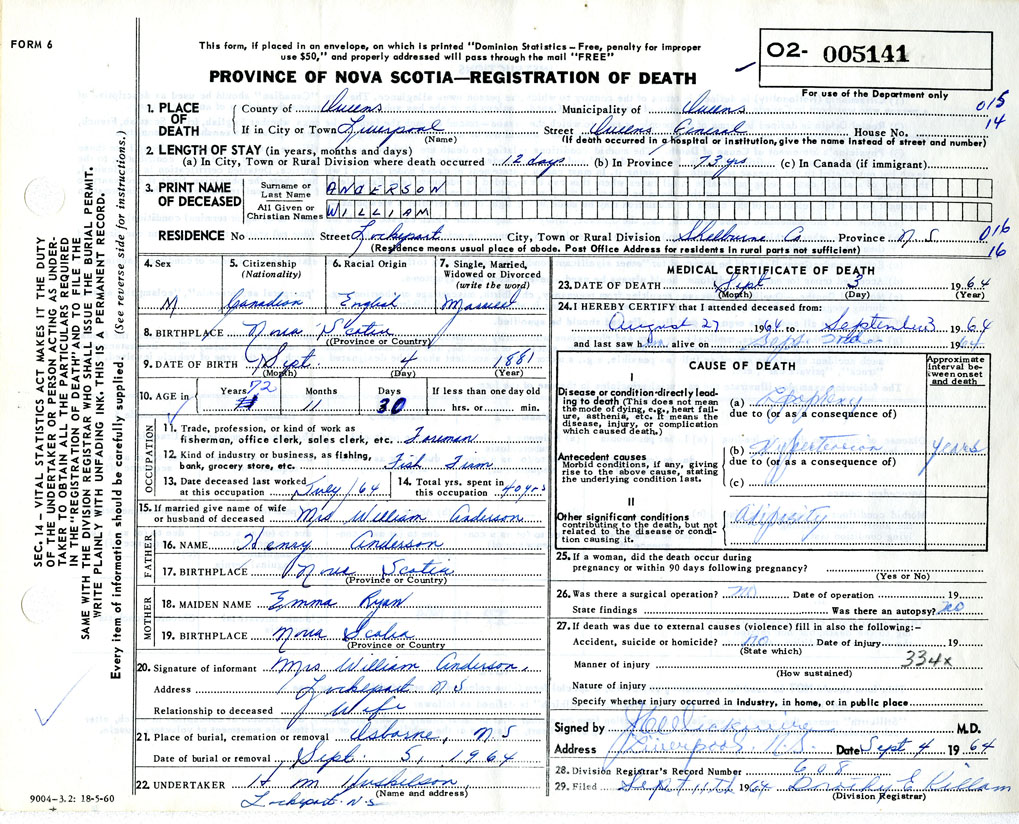 FORM 6
This form, if placed in an envelope, on which is printed "Dominion Statistics – Free, penalty for improper
use $50," and properly addressed will pass through the mail "FREE"
PROVINCE OF NOVA SCOTIA—REGISTRATION OF DEATH
O2- 005141
For use of the Department only
015
14
1. PLACE OF DEATH
County of Queens Municipality of Queens
If in City or Town Liverpool Street Queens General House No.
(Name) (If death occurred in a hospital or institution, give the name instead of street and number)
2. LENGTH OF STAY (in years, months and days)
(a) In City, Town or Rural Division where death occurred 12 days (b) In Province 73 yrs (c) In Canada (if immigrant)
3. PRINT NAME OF DECEASED
Surname or Last Name ANDERSON
All Given or Christian Names WILLIAM
RESIDENCE No Street Lockeport City, Town or Rural Division Shelburne Co Province N S
(Residence means usual place of abode. Post Office Address for residents in rural parts not sufficient)
016
16
SEC. 14 – VITAL STATISTICS ACT MAKES IT THE DUTY
OF THE UNDERTAKER OR PERSON ACTING AS UNDER-
TAKER TO OBTAIN ALL THE PARTICULARS REQUIRED
IN THE "REGISTRATION OF DEATH" AND TO FILE THE
SAME WITH THE DIVISION REGISTRAR WHO SHALL ISSUE THE BURIAL PERMIT.
WRITE PLAINLY WITH UNFADING INK. THIS IS A PERMANENT RECORD.
Every item of information should be carefully supplied. (See reverse side for instructions.)
4. Sex M
5. Citizenship (Nationality) Canadian
6. Racial Origin English
7. Single, Married, Widowed or Divorced (write the word) Married
8. BIRTHPLACE Nova Scotia
(Province or Country)
9. DATE OF BIRTH Sept. 4 1881
(Month) (Day) (Year)
10. AGE in Years 72 Months 11 Days 30 If less than one day old
hrs. or min.
OCCUPATION
11. Trade, profession, or kind of work as
fisherman, office clerk, sales clerk, etc. Foreman
12. Kind of industry or business, as fishing,
bank, grocery store, etc. Fish Firm
13. Date deceased last worked at this occupation July/64
14. Total yrs. spent in this occupation 40 yrs
15. If married give name of wife
or husband of deceased Mrs William Anderson
FATHER
16. NAME Henry Anderson
17. BIRTHPLACE Nova Scotia
(Province or Country)
MOTHER
18. MAIDEN NAME Emma Ryan
19. BIRTHPLACE Nova Scotia
(Province or Country
20. Signature of informant Mrs William Anderson.
Address Lockeport N S
Relationship to deceased Wife
21. Place of burial, cremation or removal Osborne, N S
Date of burial or removal Sept. 5, 1964
22. UNDERTAKER H M Huskilson
(Name and address)
Lockeport N.S
9004–3.2: 18-5-60
MEDICAL CERTIFICATE OF DEATH
23. DATE OF DEATH Sept 3 1964
(Month) (Day) (Year)
24. I HEREBY CERTIFY that I attended deceased from:
August 27 1964 to September 3 1964
and last saw h alive on Sept. 1964
CAUSE OF DEATH
Approximate interval between onset and death
I
Disease or condition directly lead-
ing to death (This does not mean
the mode of dying, e.g., heart fail-
ure, asthenia, etc. It means the
disease, injury, or complication
which caused death.)
(a)
due to (or as a consequence of)
Antecedent causes
Morbid conditions, if any, giving
rise to the above cause, stating
the underlying condition last.
(b) Hypertension years
due to (or as a consequence of)
(c)
II
Other significant conditions
contributing to the death, but not
related to the disease or condi-
tion causing it.
Adiposity
25. If a woman, did the death occur during
pregnancy or within 90 days following pregnancy?
(Yes or No)
26. Was there a surgical operation? no Date of operation 19
State findings Was there an autopsy? no
27. If death was due to external causes (violence) fill in also the following:–
Accident, suicide or homicide? no Date of injury 19
(State which) 334x
Manner of injury
(How sustained)
Nature of injury
Specify whether injury occurred in industry, in home, or in public place
Signed by M.D.
Address Liverpool. N.S. Date Sept 4 1964
28. Division Registrar's Record Number 608
29. Filed Sept 11th 1964 Dorothy E Killam
(Division Registrar)